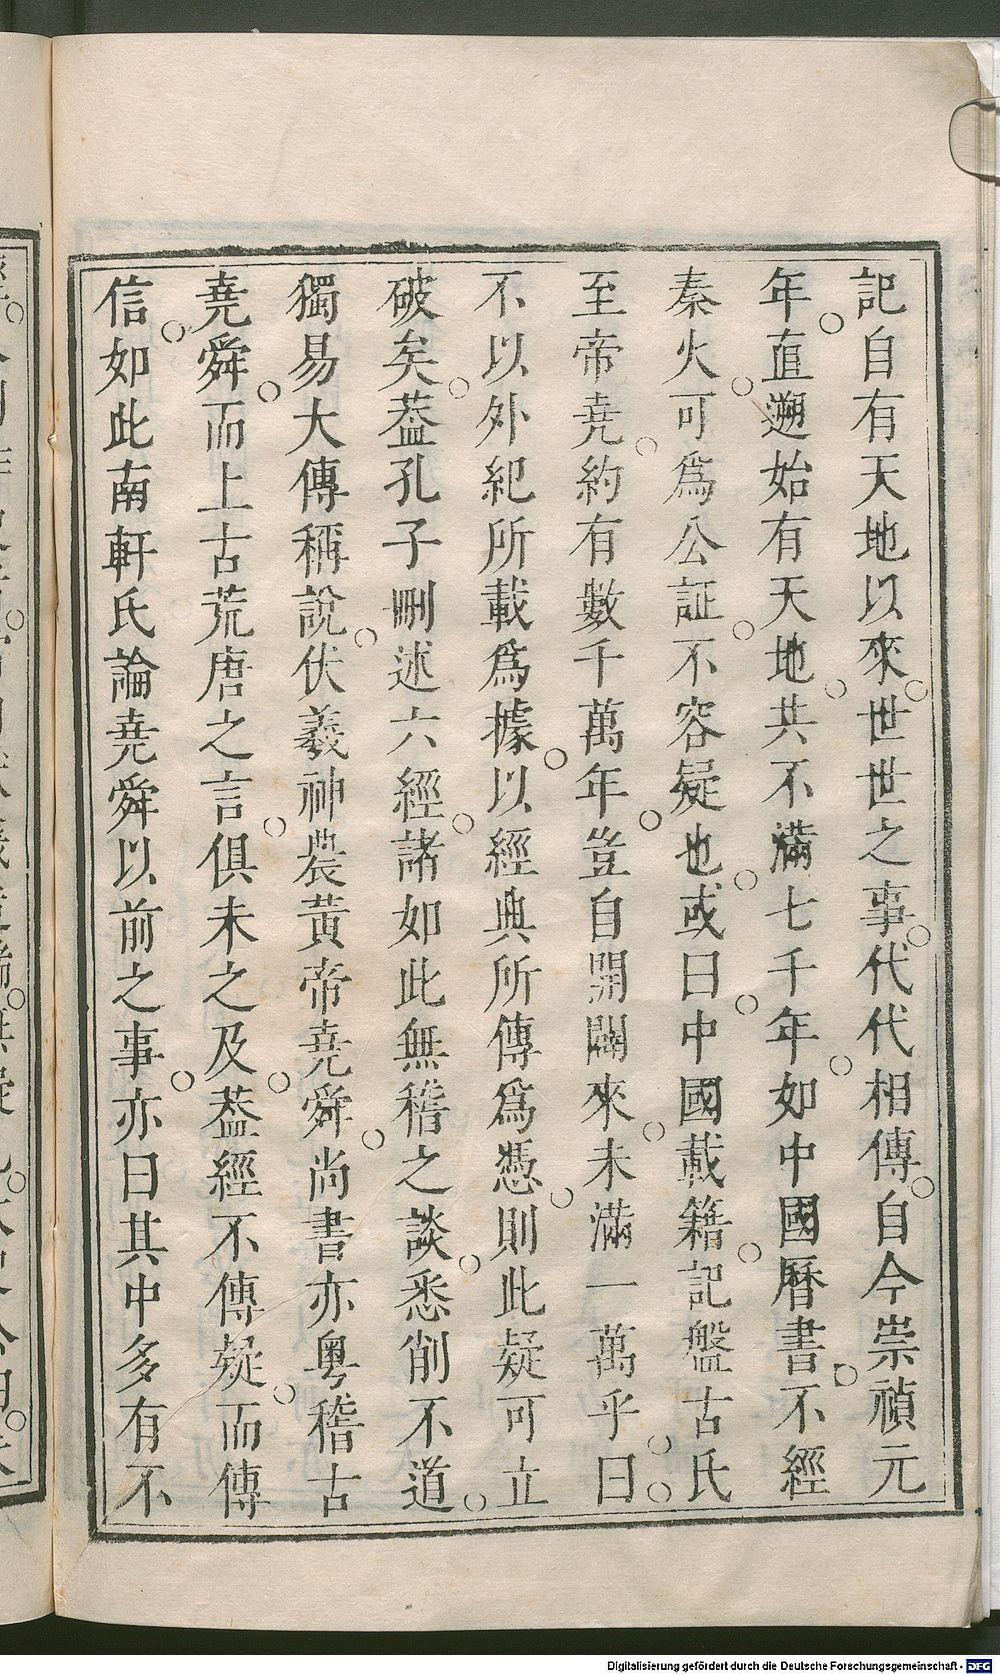 記自有天地以來○世世之事○代代相傳○自今崇禎元
年○直遡始有天地○共不滿七千年○如中國曆書○不經
秦火○可爲公証○不容疑也○或曰○中國載籍○記盤古氏
至帝堯○約有數千萬年○豈自開闢來○未滿一萬乎○曰○
不以外紀所載爲據○以經典所傳爲憑○則此疑可立
破矣○葢孔子刪述六經○諸如此無稽之談○悉削不道○
獨易大傳稱說○伏羲神農黃帝堯舜○尚書亦粤稽古
堯舜○而上古荒唐之言○俱未之及○葢經不傳疑○而傳
信○如此南軒氏論堯舜以前之事○亦曰其中多有不
Digitalisierung gefördert durch die Deutsche Forschungsgemeinschaft - DFG